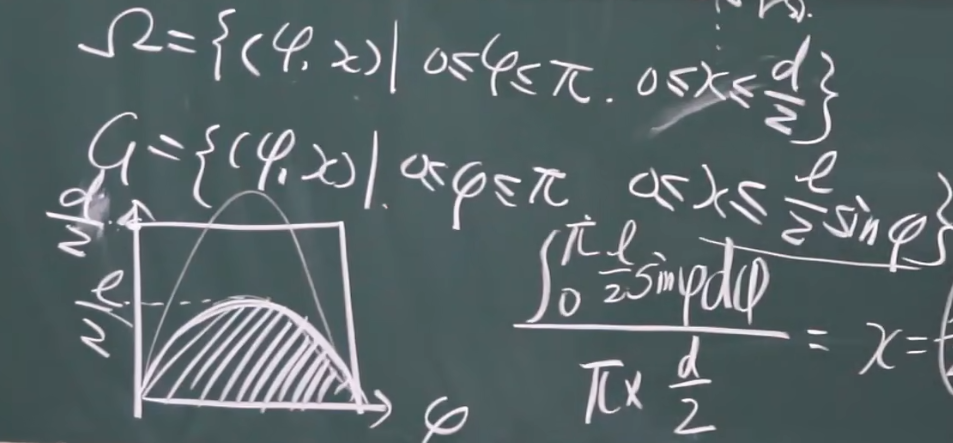 Ω={(φ,x)| 0≤φ≤π. 0≤x≤d/2}
G={(φ,x)|. 0≤φ≤π 0≤x≤l/2 sinφ}
d/2
l/2
φ
∫₀^π l/2 sinφdφ / π× d/2 = x=